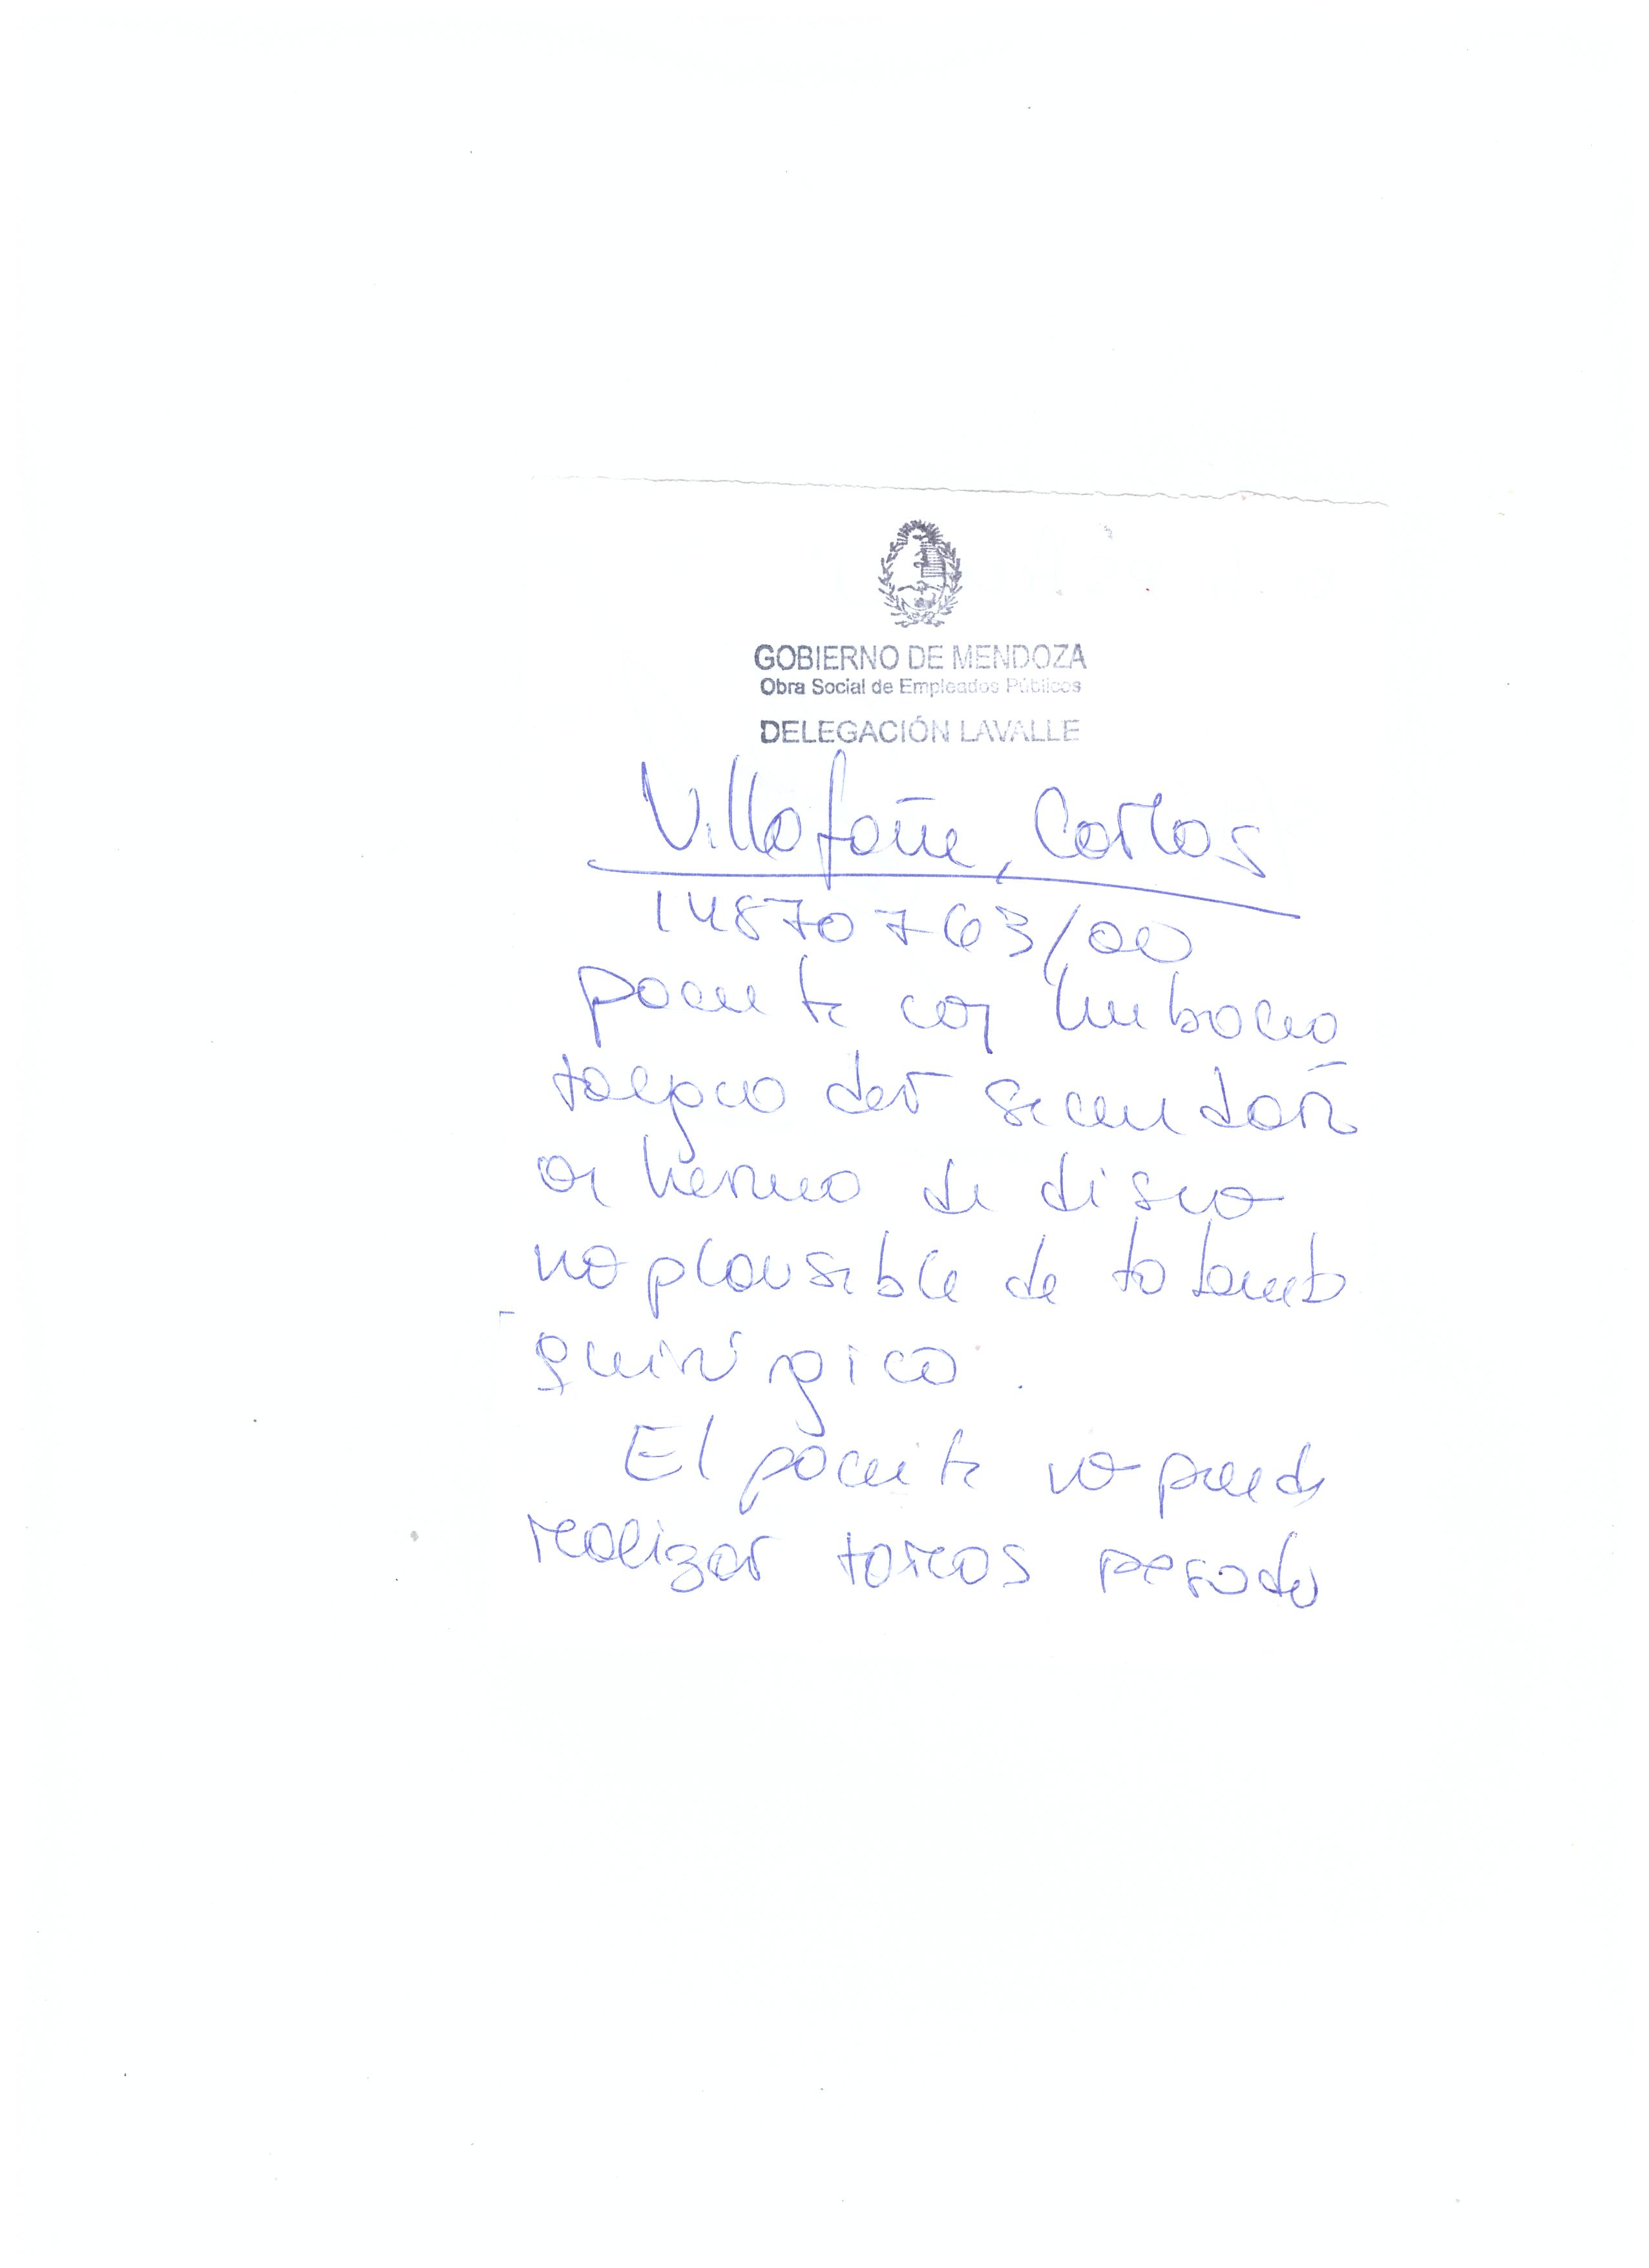 GOBIERNO DE MENDOZA
Obra Social de Empleados Públicos
DELEGACIÓN LAVALLE
Villafañe, Carlos
14870763/00
paciente con lumbocia
der secundaria
a hernia de disco
no plausible de tratamiento
quirúrgico.
El paciente no puede
realizar tareas pesadas